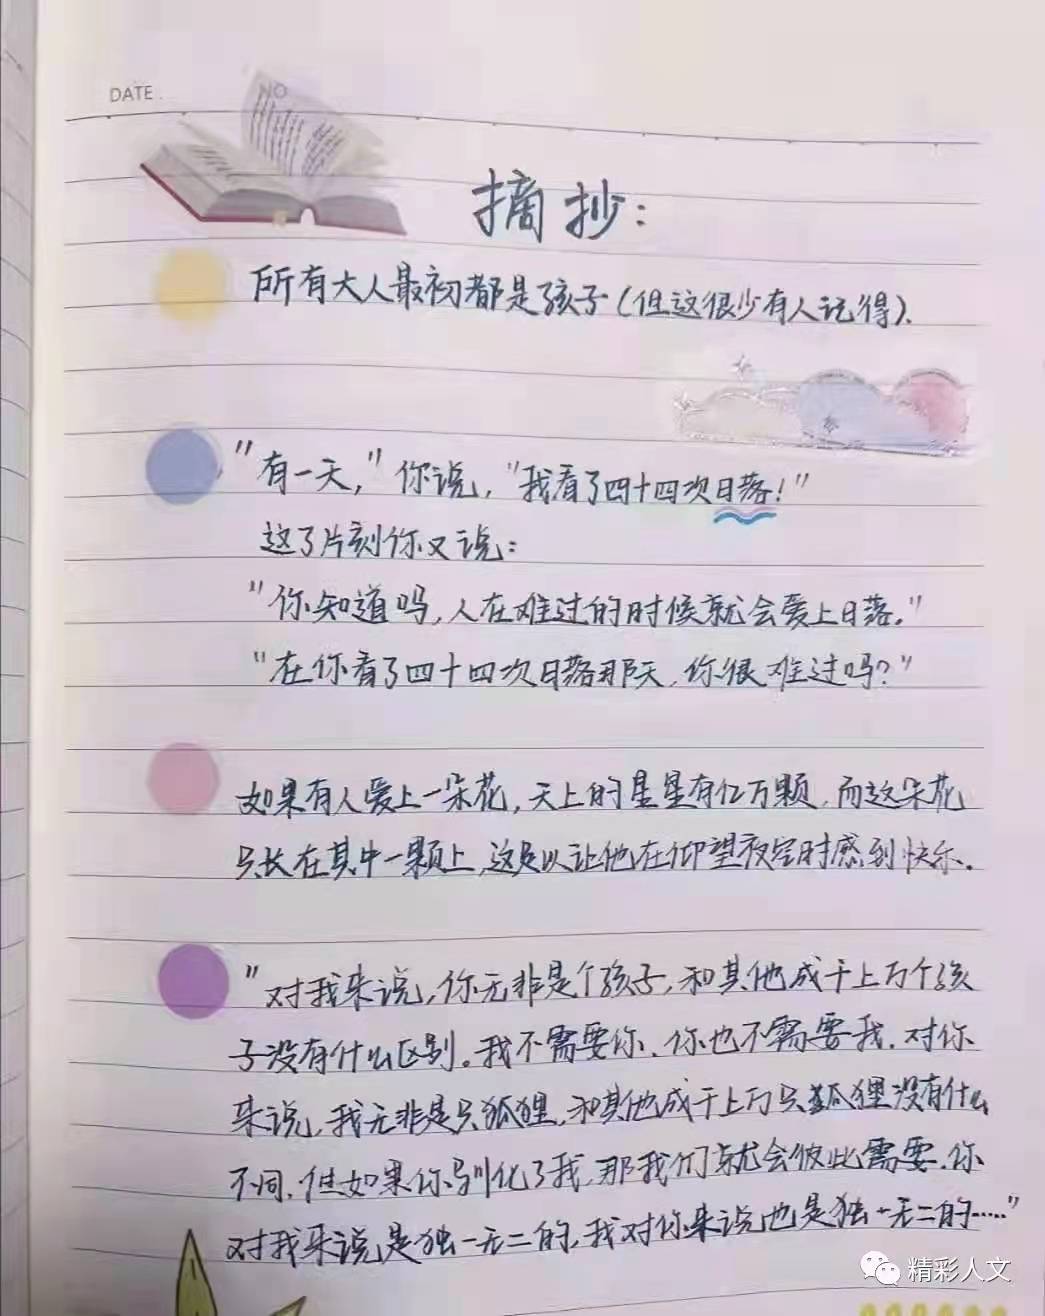 DATE.
NO
摘抄:
所有大人最初都是孩子(但这很少有人记得).
"有一天,"你说,"我看了四十四次日落!"
这了片刻你又说:
"你知道吗,人在难过的时候就会爱上日落."
"在你看了四十四次日落那天,你很难过吗?"
如果有人爱上一朵花,天上的星星有亿万颗,而这朵花
只长在其中一颗上,这足以让他在仰望夜空时感到快乐.
"对我来说,你无非是个孩子,和其他成千上万个孩
子没有什么区别。我不需要你,你也不需要我.对你
来说,我无非是只狐狸,和其他成千上万只狐狸没有什么
不同,但如果你驯化了我,那我们就会彼此需要.你
对我来说是独一无二的,我对你来说也是独一无二的....."
精彩人文